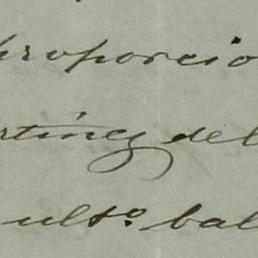 proporcio
rtinez del
ulto. bal